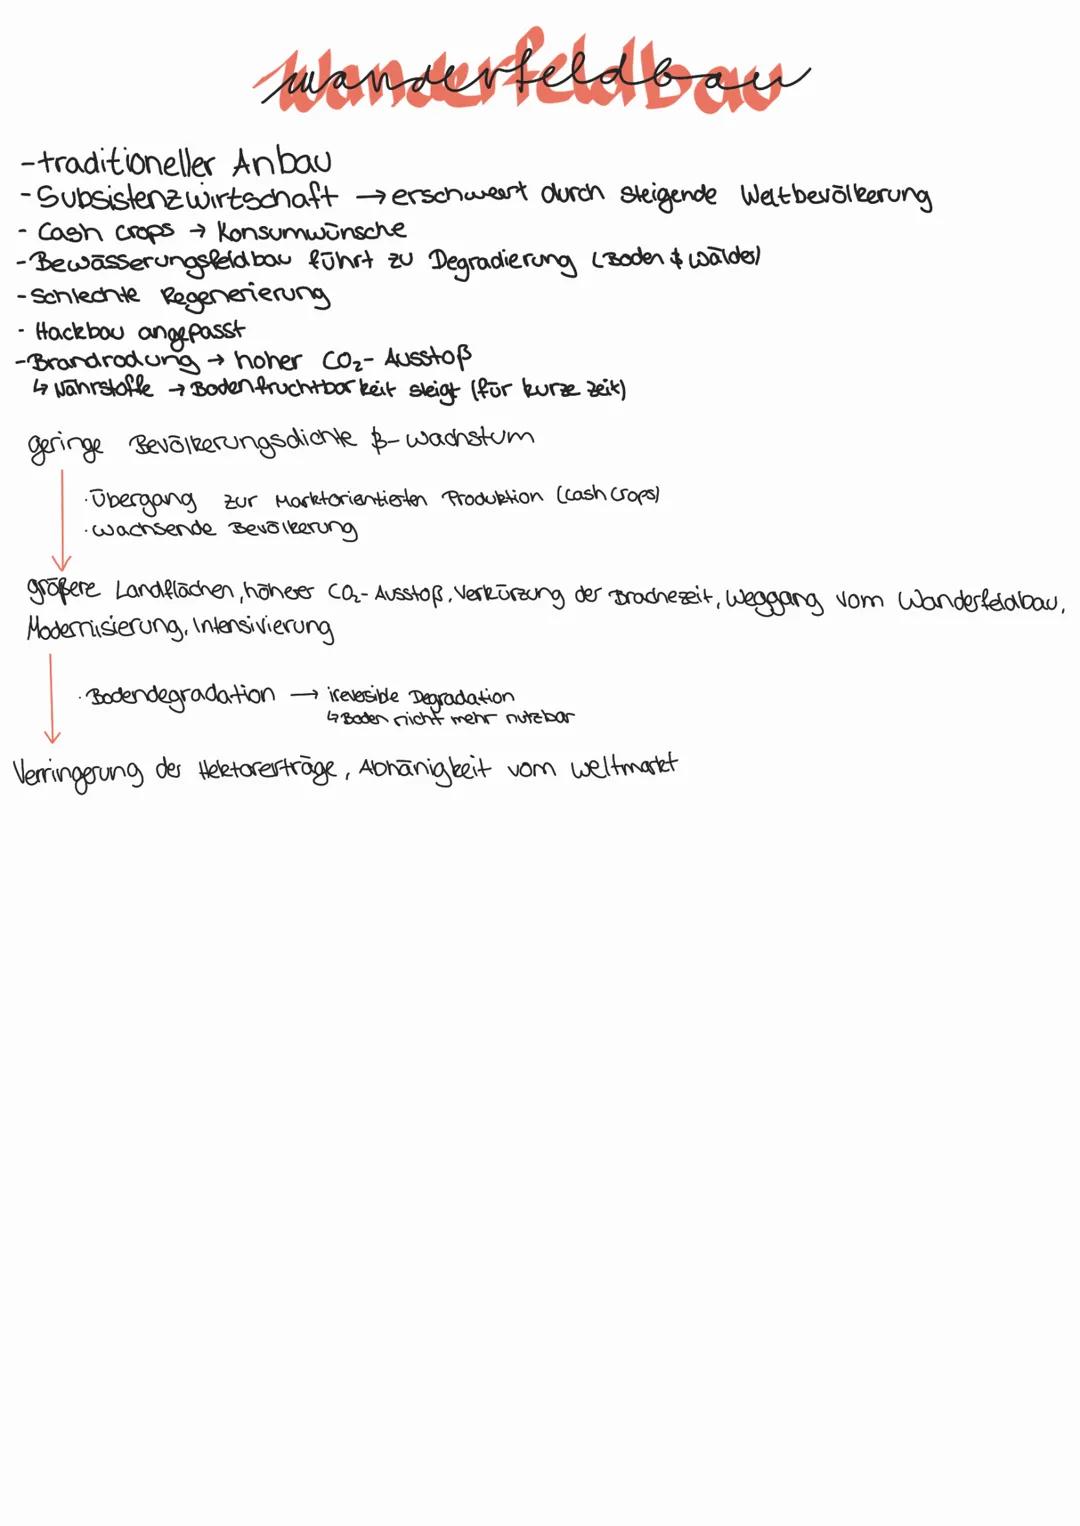 wanderfeldbau
-traditioneller Anbau
-Subsistenzwirtschaft → erschwert durch steigende Weltbevölkerung
- Cash crops → Konsumwünsche
-Bewässerungsfeldbau führt zu Degradierung (Boden & Wälder)
-Schlechte Regenerierung
- Hackbau angepasst
-Brandrodung → hoher CO₂- Ausstoß
↳ Nährstoffe → Bodenfruchtbarkeit steigt (für kurze Zeit)
geringe Bevölkerungsdichte &-wachstum
·Übergang zur Marktorientierten Produktion (cash crops)
·wachsende Bevölkerung
größere Landflächen, höherer CO₂- Ausstoß, Verkürzung der Brachezeit, Weggang vom Wanderfeldbau,
Modernisierung, Intensivierung
·Bodendegradation → ireversible Degradation
↳ Boden nicht mehr nutzbar
Verringerung der Hektarerträge, Abhänigkeit vom Weltmarkt